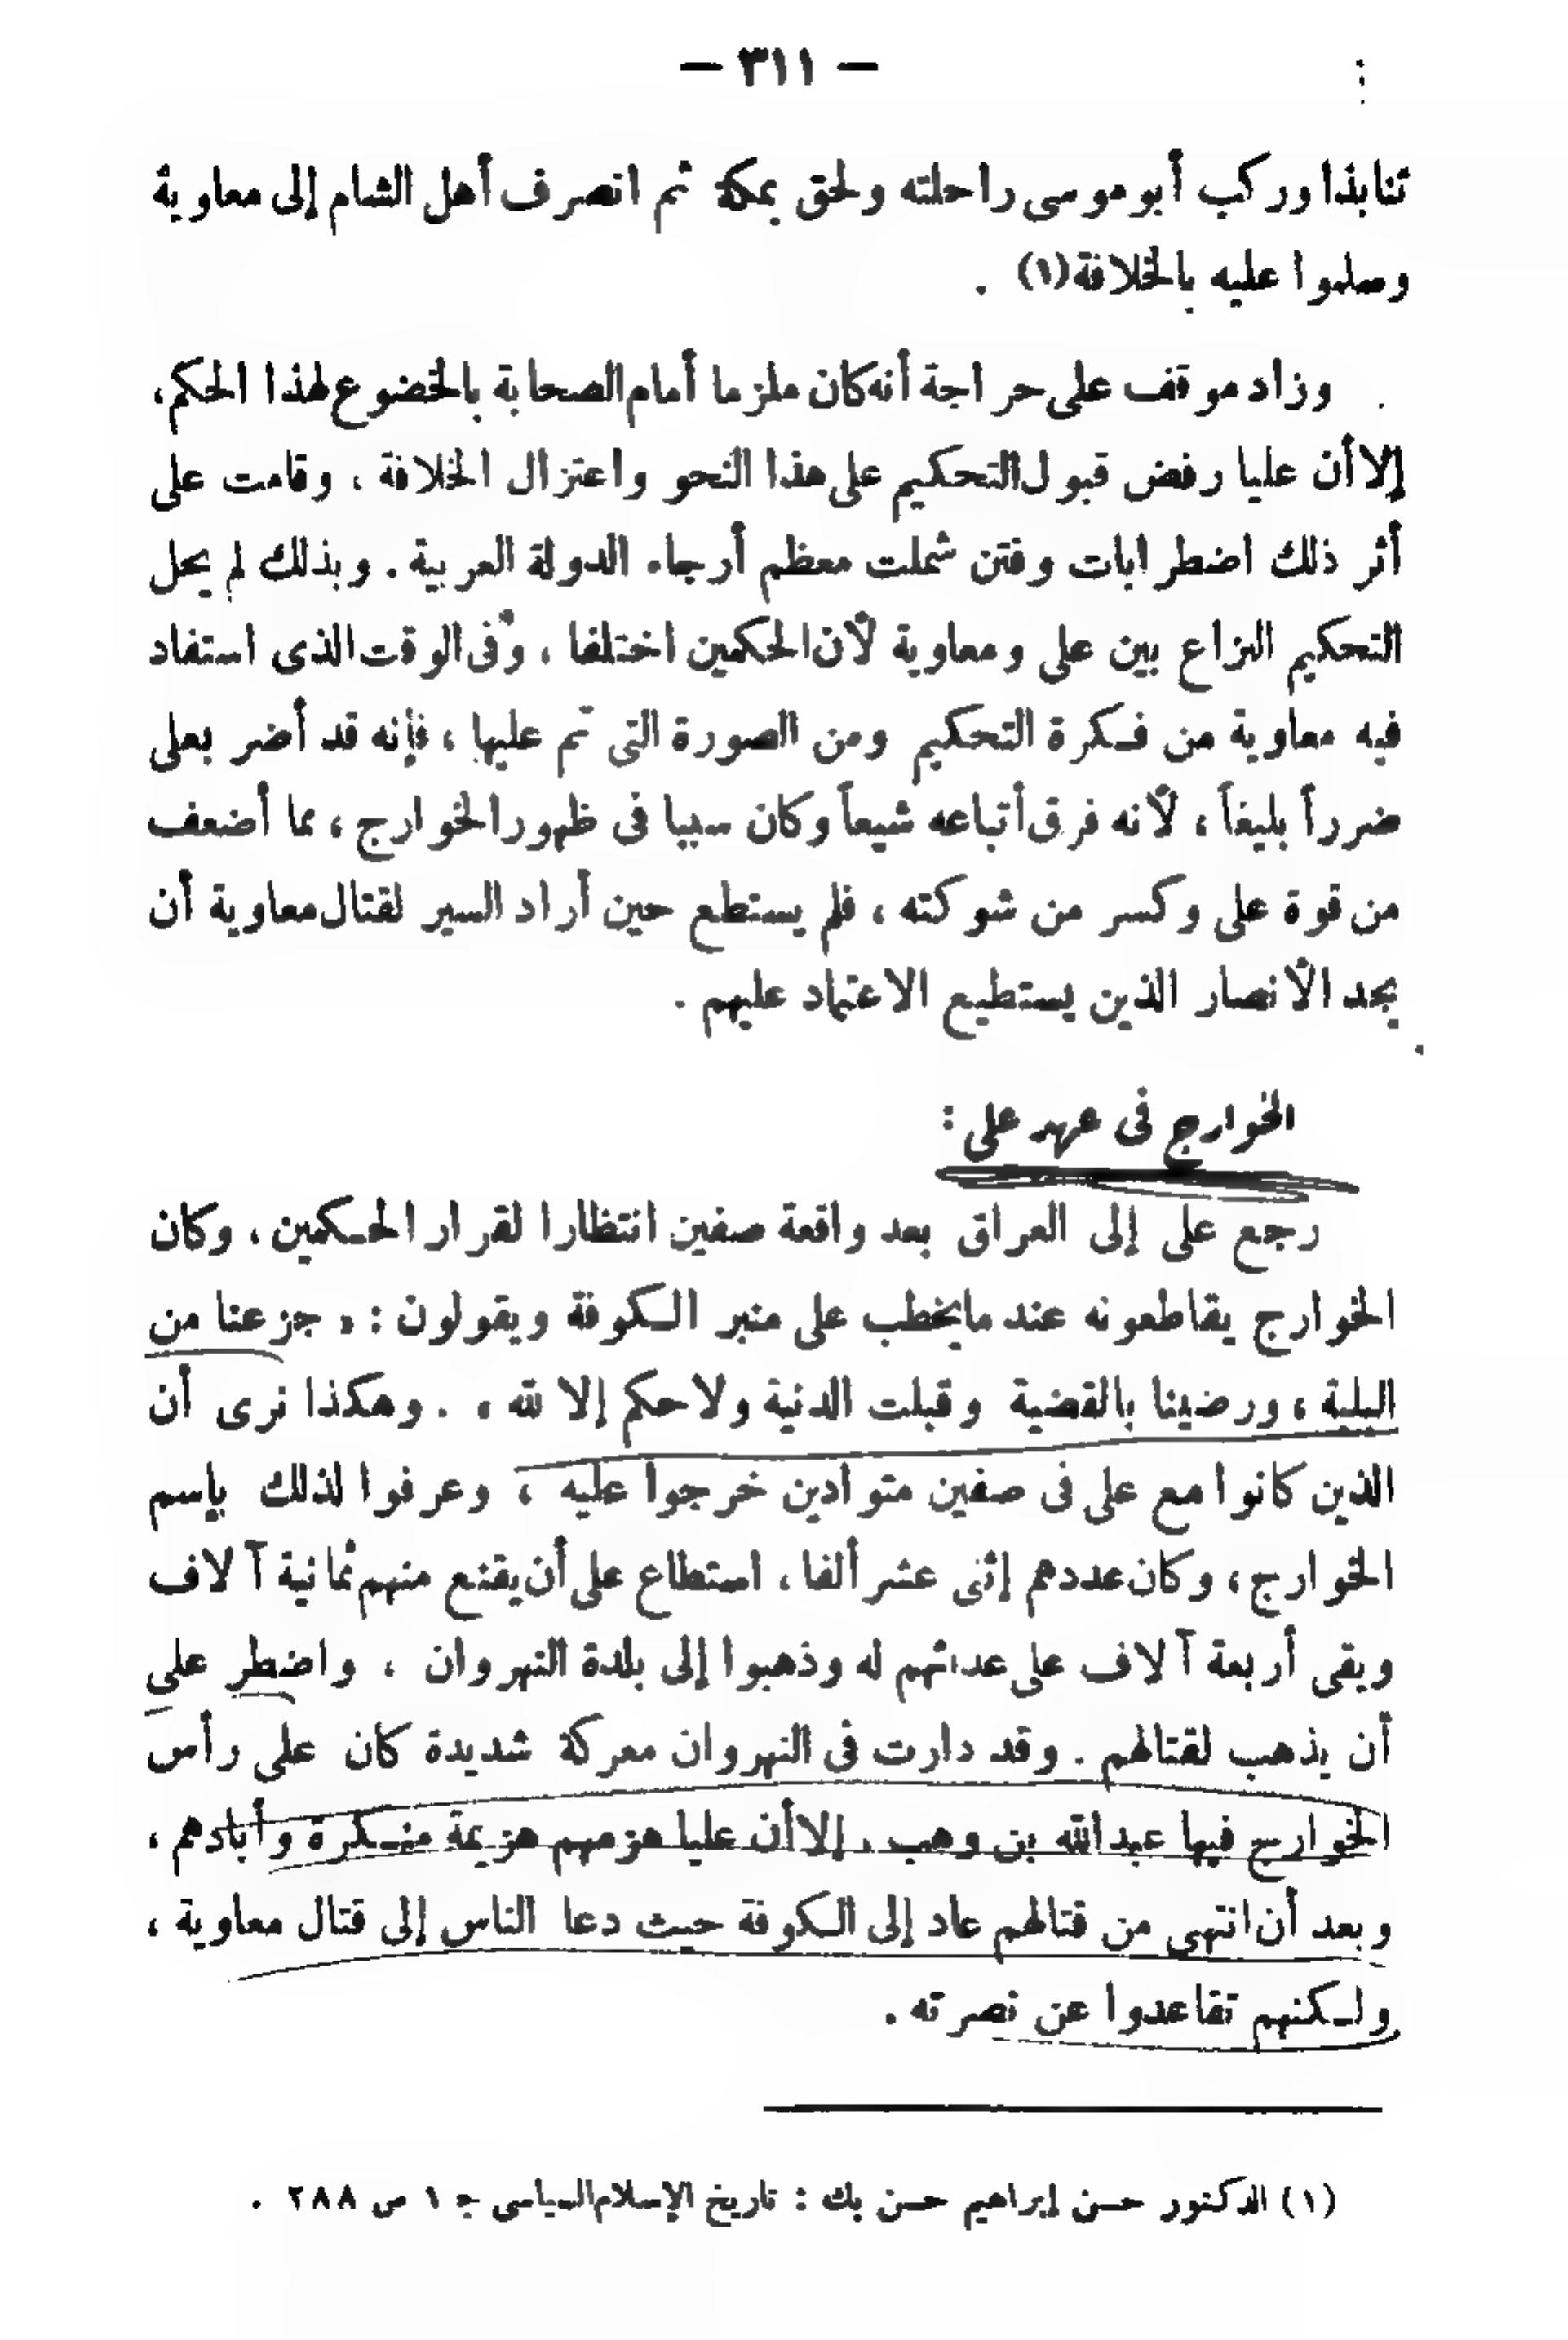 — ٣١١ —
تنابذا وركب أبو موسى راحلته ولحق بمكة ثم انصرف أهل الشام إلى معاوية
وسلموا عليه بالخلافة (١) .
وزاد موقف على حراجة أنه كان ملزما أمام الصحابة بالخضوع لهذا الحكم،
إلا أن عليا رفض قبول التحكيم على هذا النحو واعتزال الخلافة ، وقامت على
أثر ذلك اضطرابات وفتن شملت معظم أرجاء الدولة العربية . وبذلك لم يحل
التحكيم النزاع بين على ومعاوية لأن الحكمين اختلفا ، وفى الوقت الذى استفاد
فيه معاوية من فكرة التحكيم ومن الصورة التى تم عليها ، فإنه قد أضر بعلى
ضرراً بليغاً ، لأنه فرق أتباعه شيعاً وكان سببا فى ظهور الخوارج ، مما أضعف
من قوة على وكسر من شوكته ، فلم يستطع حين أراد السير لقتال معاوية أن
يجد الأنصار الذين يستطيع الاعتماد عليهم .
الخوارج فى عهد على :
رجع على إلى العراق بعد واقعة صفين انتظارا لقرار الحكمين ، وكان
الخوارج يقاطعونه عند ما يخطب على منبر الكوفة ويقولون : « جزعنا من
البلية ، ورضينا بالقضية وقبلت الدنية ولا حكم إلا لله » . وهكذا نرى أن
الذين كانوا مع على فى صفين متوادين خرجوا عليه ، وعرفوا لذلك بإسم
الخوارج ، وكان عددهم إثنى عشر ألفا ، استطاع على أن يقنع منهم ثمانية آلاف
وبقى أربعة آلاف على عدائهم له وذهبوا إلى بلدة النهروان ، واضطر على
أن يذهب لقتالهم . وقد دارت فى النهروان معركة شديدة كان على رأس
الخوارج فيها عبد الله بن وهب . إلا أن عليا هزمهم هزيمة منكرة وأبادهم ،
وبعد أن انتهى من قتالهم عاد إلى الكوفة حيث دعا الناس إلى قتال معاوية ،
ولكنهم تقاعدوا عن نصرته .
(١) الدكتور حسن إبراهيم حسن بك : تاريخ الإسلام السياسى ج ١ ص ٢٨٨ .